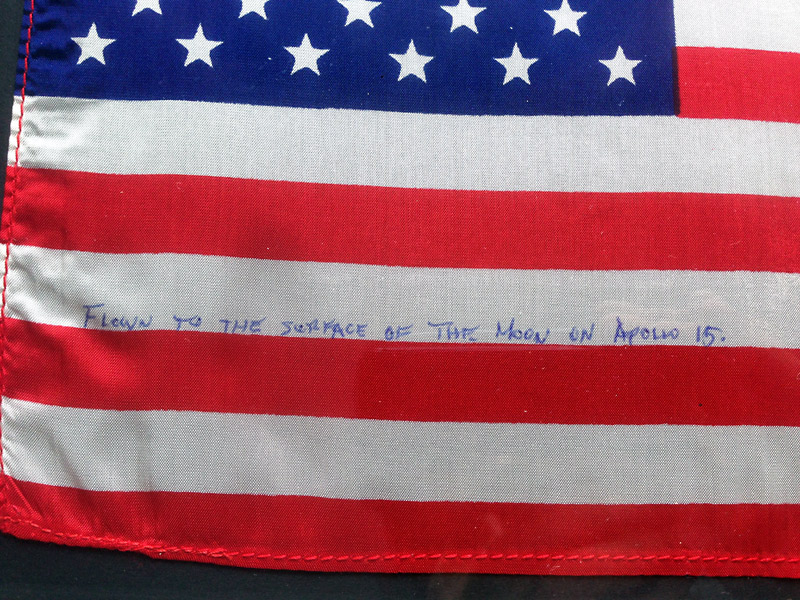 FLOWN TO THE SURFACE OF THE MOON ON APOLLO 15.